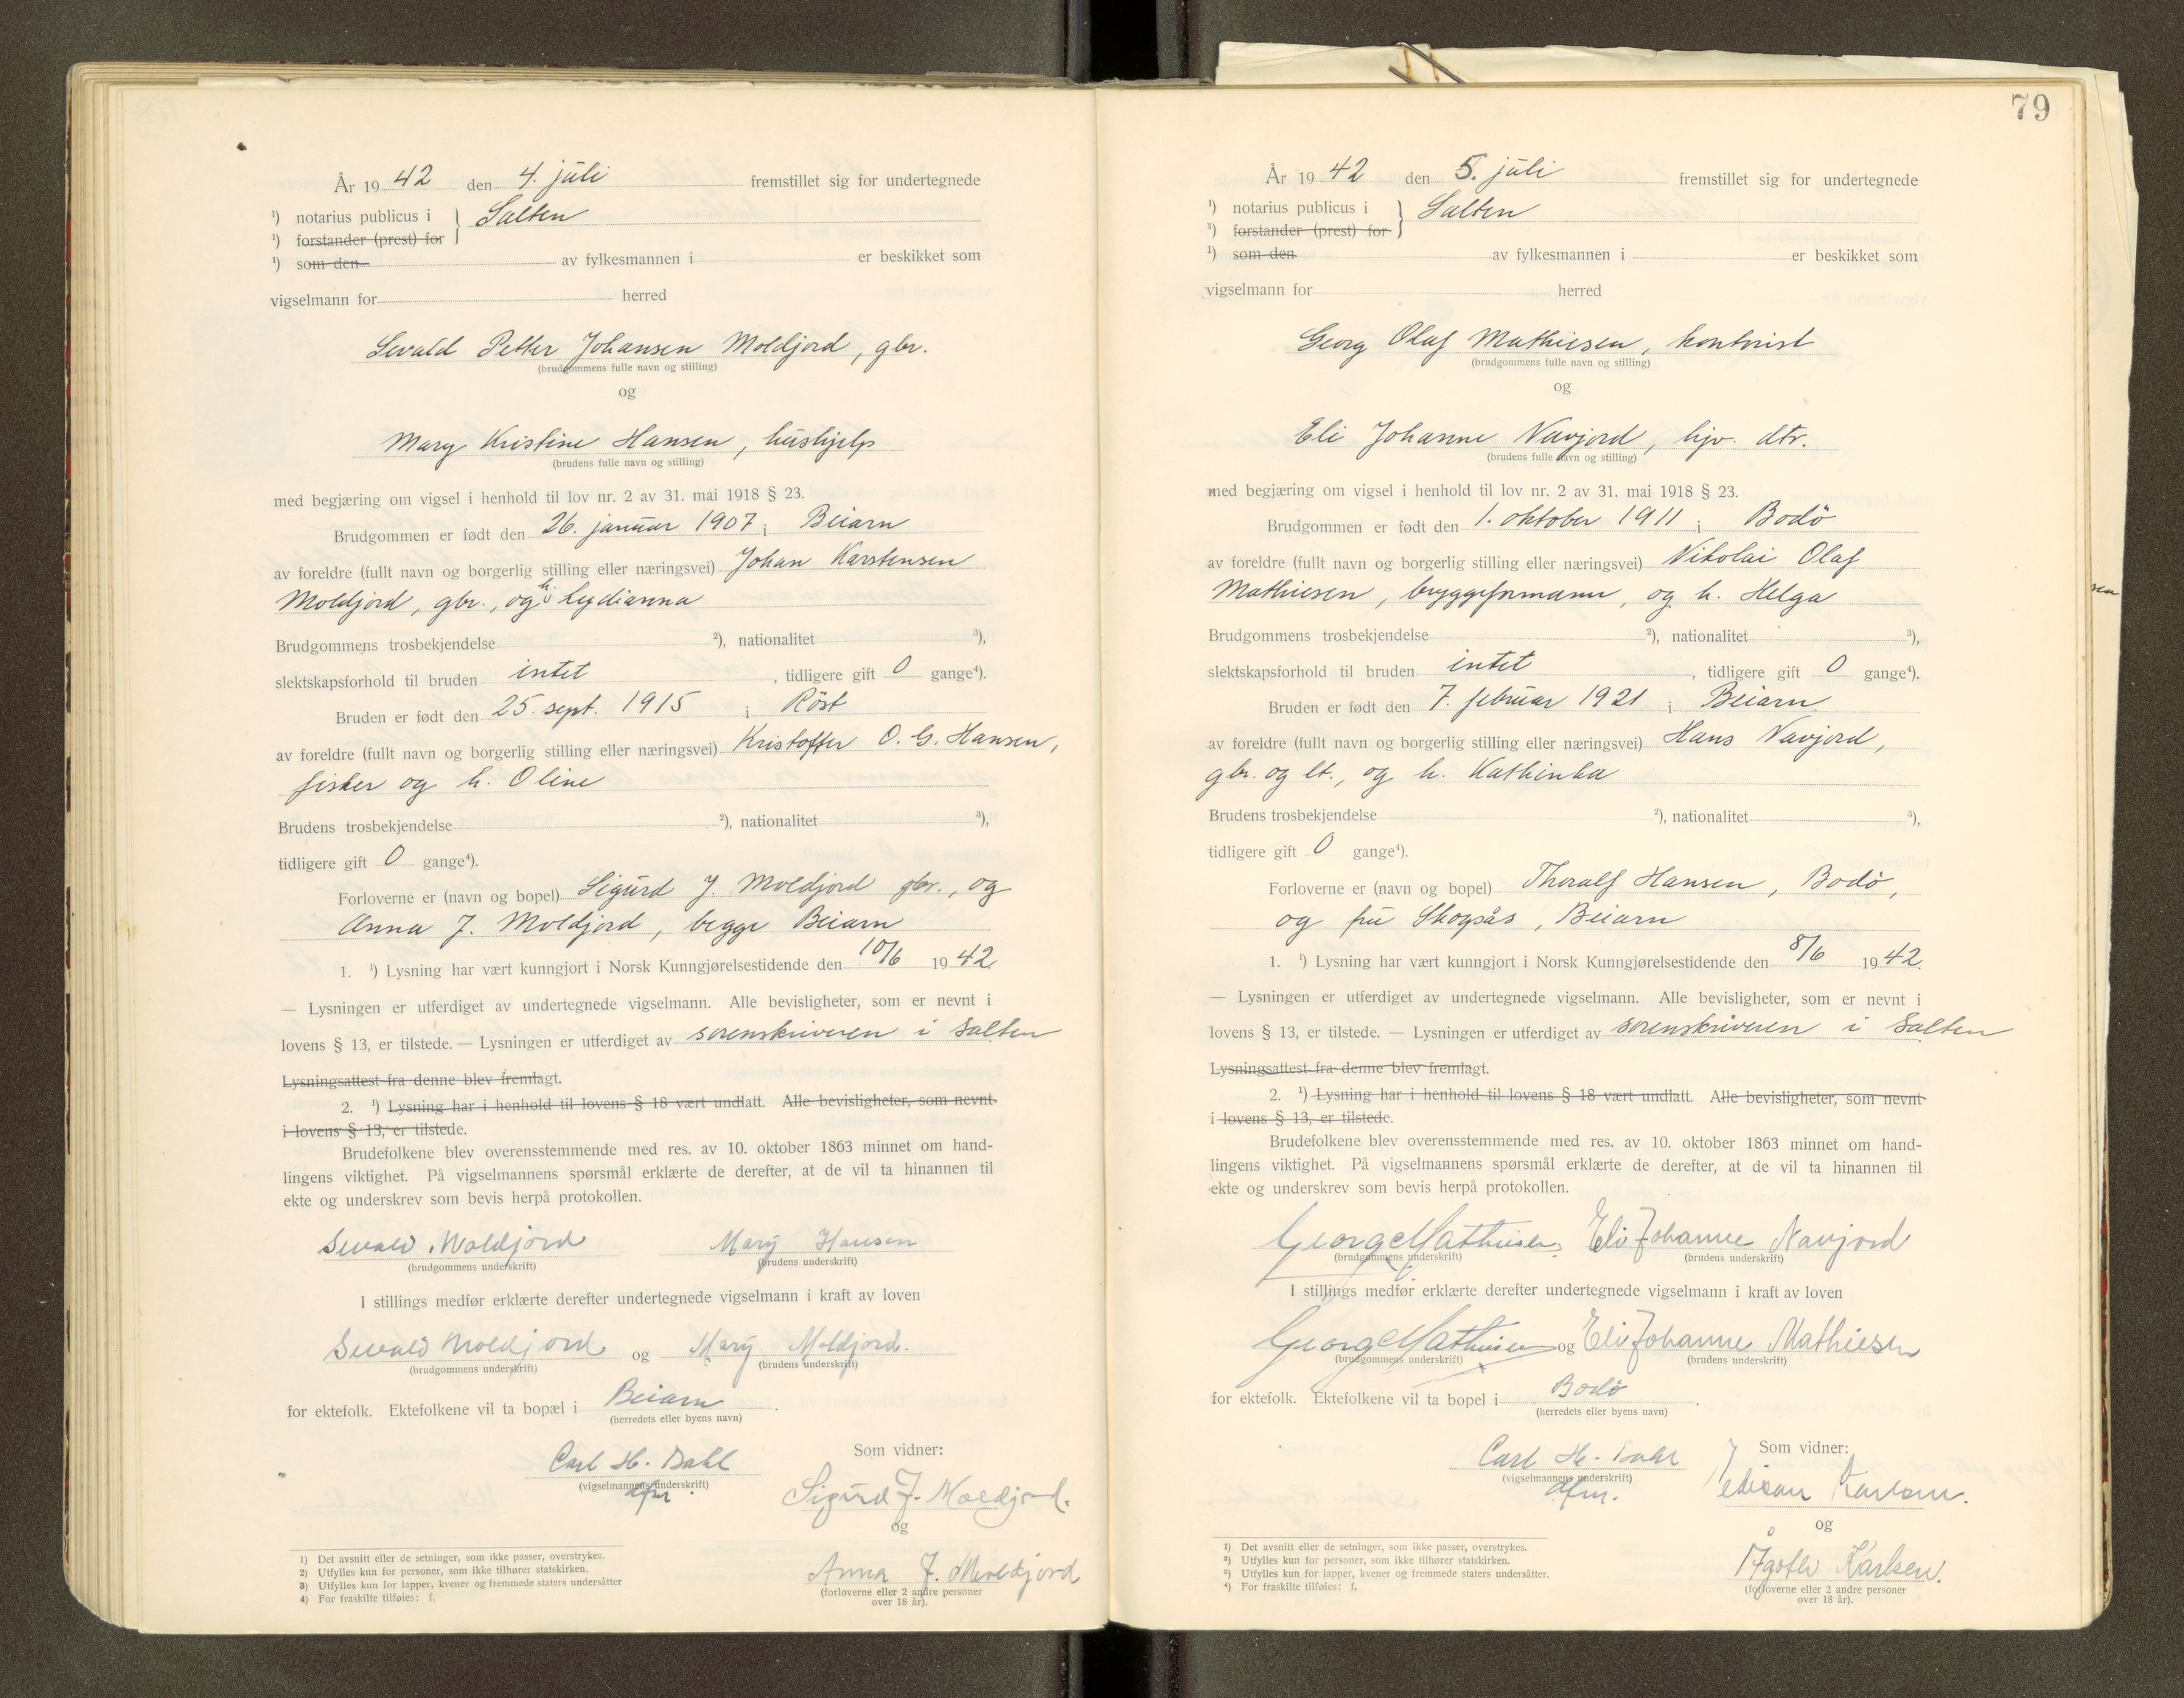 År 1942 den 4. juli fremstillet sig for undertegnede
¹) notarius publicus i } Salten
¹) forstander (prest) for
¹) som den av fylkesmannen i er beskikket som
vigselmann for herred
Sevald Petter Johansen Moldjord, gbr.
(brudgommens fulle navn og stilling)
og
Mary Kristine Hansen, hushjelp
(brudens fulle navn og stilling)
med begjæring om vigsel i henhold til lov nr. 2 av 31. mai 1918 § 23.
Brudgommen er født den 26. januar 1907 i Beiarn
av foreldre (fullt navn og borgerlig stilling eller næringsvei) Johan Karstensen
Moldjord, gbr., og h. Lydianna
Brudgommens trosbekjendelse ²), nationalitet ³),
slektskapsforhold til bruden intet, tidligere gift 0 gange⁴).
Bruden er født den 25. sept. 1915 i Röst
av foreldre (fullt navn og borgerlig stilling eller næringsvei) Kristoffer O. G. Hansen,
fisker og h. Oline
Brudens trosbekjendelse ²), nationalitet ³),
tidligere gift 0 gange⁴).
Forloverne er (navn og bopel) Sigurd J. Moldjord gbr., og
Anna J. Moldjord, begge Beiarn
1. ¹) Lysning har vært kunngjort i Norsk Kunngjørelsestidende den 10/6 1942.
— Lysningen er utferdiget av undertegnede vigselmann. Alle bevisligheter, som er nevnt i
lovens § 13, er tilstede. — Lysningen er utferdiget av sorenskriveren i Salten
Lysningsattest fra denne blev fremlagt.
2. ¹) Lysning har i henhold til lovens § 18 vært undlatt. Alle bevisligheter, som nevnt
i lovens § 13, er tilstede.
Brudefolkene blev overensstemmende med res. av 10. oktober 1863 minnet om hand-
lingens viktighet. På vigselmannens spørsmål erklærte de derefter, at de vil ta hinannen til
ekte og underskrev som bevis herpå protokollen.
Sevald Moldjord Mary Hansen
(brudgommens underskrift) (brudens underskrift)
I stillings medfør erklærte derefter undertegnede vigselmann i kraft av loven
Sevald Moldjord og Mary Moldjord.
(brudgommens underskrift) (brudens underskrift)
for ektefolk. Ektefolkene vil ta bopæl i Beiarn.
(herredets eller byens navn)
Carl H. Dahl Som vidner:
(vigselmannens underskrift) Sigurd J. Moldjord.
dfm.
og
Anna J. Moldjord
(forloverne eller 2 andre personer
over 18 år).
1) Det avsnitt eller de setninger, som ikke passer, overstrykes.
2) Utfylles kun for personer, som ikke tilhører statskirken.
3) Utfylles kun for lapper, kvener og fremmede staters undersåtter
4) For fraskilte tilføies: f.
79
År 1942 den 5. juli fremstillet sig for undertegnede
¹) notarius publicus i } Salten
¹) forstander (prest) for
¹) som den av fylkesmannen i er beskikket som
vigselmann for herred
Georg Olaf Mathiesen, kontorist
(brudgommens fulle navn og stilling)
og
Eli Johanne Navjord, hjv. dtr.
(brudens fulle navn og stilling)
med begjæring om vigsel i henhold til lov nr. 2 av 31. mai 1918 § 23.
Brudgommen er født den 1. oktober 1911 i Bodö
av foreldre (fullt navn og borgerlig stilling eller næringsvei) Nikolai Olaf
Mathiesen, bryggeformann, og h. Helga
Brudgommens trosbekjendelse ²), nationalitet ³),
slektskapsforhold til bruden intet, tidligere gift 0 gange⁴).
Bruden er født den 7. februar 1921 i Beiarn
av foreldre (fullt navn og borgerlig stilling eller næringsvei) Hans Navjord,
gbr. og lt., og h. Kathinka
Brudens trosbekjendelse ²), nationalitet ³),
tidligere gift 0 gange⁴).
Forloverne er (navn og bopel) Thoralf Hansen, Bodö,
og fru Skogsås, Beiarn
1. ¹) Lysning har vært kunngjort i Norsk Kunngjørelsestidende den 8/6 1942.
— Lysningen er utferdiget av undertegnede vigselmann. Alle bevisligheter, som er nevnt i
lovens § 13, er tilstede. — Lysningen er utferdiget av sorenskriveren i Salten
Lysningsattest fra denne blev fremlagt.
2. ¹) Lysning har i henhold til lovens § 18 vært undlatt. Alle bevisligheter, som nevnt
i lovens § 13, er tilstede.
Brudefolkene blev overensstemmende med res. av 10. oktober 1863 minnet om hand-
lingens viktighet. På vigselmannens spørsmål erklærte de derefter, at de vil ta hinannen til
ekte og underskrev som bevis herpå protokollen.
Georg Mathiesen Eli Johanne Navjord
(brudgommens underskrift) (brudens underskrift)
I stillings medfør erklærte derefter undertegnede vigselmann i kraft av loven
Georg Mathiesen og Eli Johanne Mathiesen
(brudgommens underskrift) (brudens underskrift)
for ektefolk. Ektefolkene vil ta bopel i Bodö.
(herredets eller byens navn)
Carl H. Dahl Som vidner:
(vigselmannens underskrift) Karlsen.
dfm.
og
Karlsen.
(forloverne eller 2 andre personer
over 18 år).
1) Det avsnitt eller de setninger, som ikke passer, overstrykes.
2) Utfylles kun for personer, som ikke tilhører statskirken.
3) Utfylles kun for lapper, kvener og fremmede staters undersåtter.
4) For fraskilte tilføies: f.